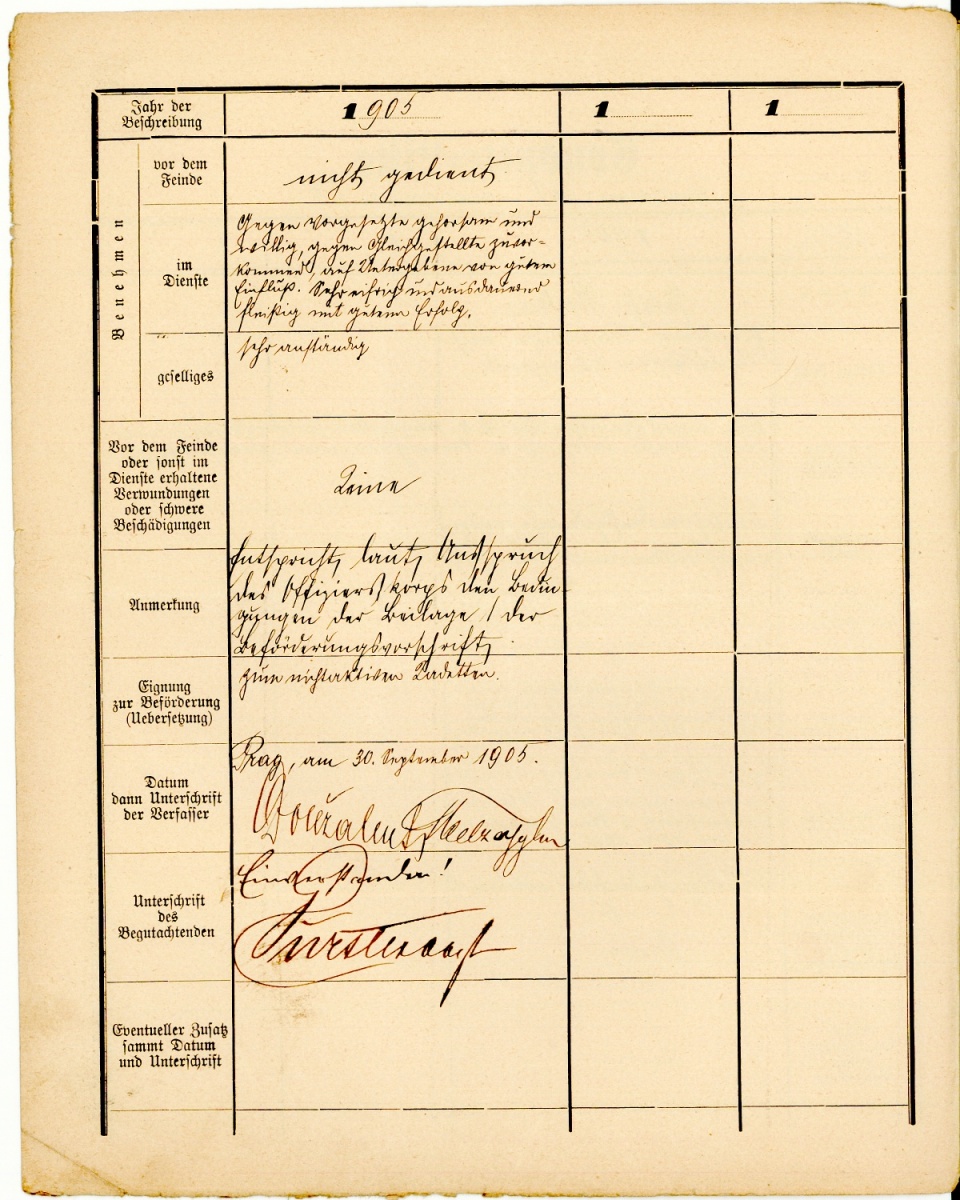 Jahr der
Beschreibung
1905
1
1
Benehmen
vor dem
Feinde
nicht gedient
im
Dienste
Gegen Vorgesetzte gehorsam und
willig, gegen Gleichgestellte zuvor-
kommend, auf Untergebene von gutem
Einfluß. Sehr eifrig und ausdauernd
fleißig mit gutem Erfolg.
geselliges
sehr anständig
Vor dem Feinde
oder sonst im
Dienste erhaltene
Verwundungen
oder schwere
Beschädigungen
Keine
Anmerkung
Entspricht laut Ausspruch
des Offizierskorps den Bedin-
gungen der Beilage 1 der
Beförderungsvorschrift
Eignung
zur Beförderung
(Uebersetzung)
zum nichtaktiven Kadetten.
Datum
dann Unterschrift
der Verfasser
Prag, am 30. September 1905.
Unterschrift
des
Begutachtenden
Einverstanden!
Eventueller Zusatz
sammt Datum
und Unterschrift